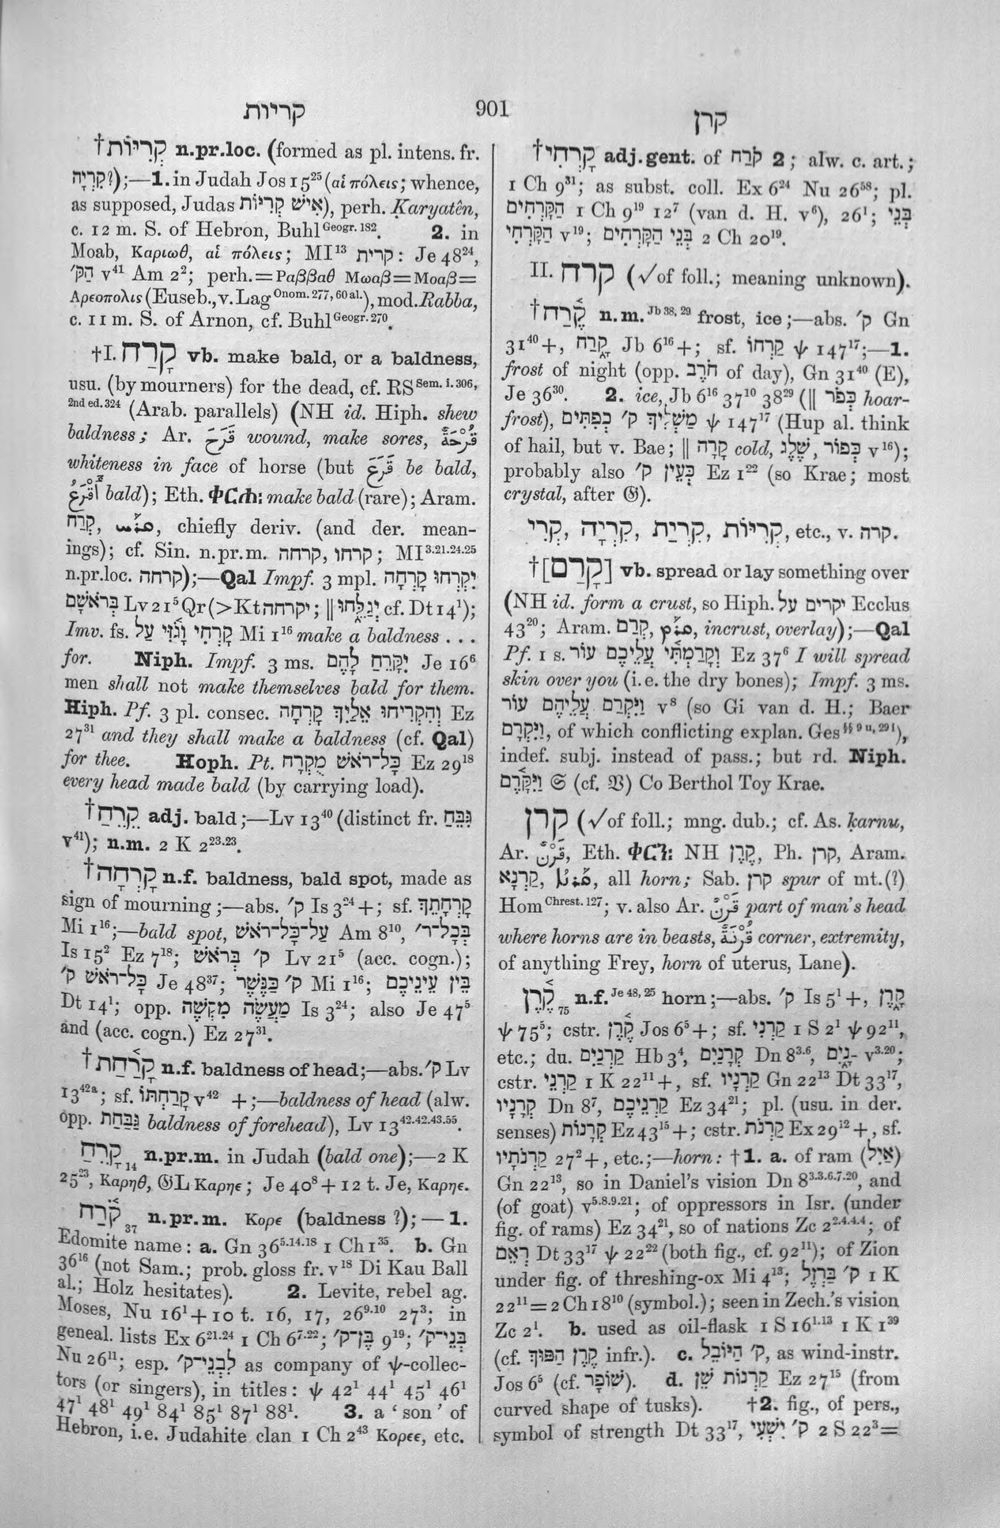 קריות
901
קרן
† קְרִיּוֹת n.pr.loc. (formed as pl. intens. fr.
קִרְיָה?);—1. in Judah Jos 15²⁵ (αἱ πόλεις; whence,
as supposed, Judas אִישׁ קְרִיּוֹת), perh. Ḳaryatên,
c. 12 m. S. of Hebron, Buhl Geogr. 182. 2. in
Moab, Καριωθ, αἱ πόλεις; MI¹³ קרית: Je 48²⁴,
הַקּ׳ v⁴¹ Am 2²; perh.=Ραββαθ Μωαβ=Μοαβ=
Αρεοπολις (Euseb., v. Lag Onom. 277, 60 al.), mod. Rabba,
c. 11 m. S. of Arnon, cf. Buhl Geogr. 270.
†I. קרח vb. make bald, or a baldness,
usu. (by mourners) for the dead, cf. RS Sem. i. 306,
2nd ed. 324 (Arab. parallels) (NH id. Hiph. shew
baldness; Ar. قَرَحَ wound, make sores, قُرْحَةٌ
whiteness in face of horse (but قَرِعَ be bald,
أَقْرَعُ bald); Eth. make bald (rare); Aram.
קְרַח, chiefly deriv. (and der. mean-
ings); cf. Sin. n.pr.m. קרחו, קרחה; MI 3.21.24.25
n.pr.loc. קרחה);—Qal Impf. 3 mpl. יִקְרְחוּ קָרְחָה
בְּרֹאשָׁם Lv 21⁵ Qr (> Kt יקרחה; ‖ יְגַלֵּחוּ cf. Dt 14¹);
Imv. fs. קָרְחִי וָגֹזִּי עַל Mi 1¹⁶ make a baldness . . .
for. Niph. Impf. 3 ms. יִקָּרֵחַ לָהֶם Je 16⁶
men shall not make themselves bald for them.
Hiph. Pf. 3 pl. consec. וְהִקְרִיחוּ אֵלַיִךְ קָרְחָה Ez
27³¹ and they shall make a baldness (cf. Qal)
for thee. Hoph. Pt. כָּל־רֹאשׁ מֻקְרָח Ez 29¹⁸
every head made bald (by carrying load).
† קֵרֵחַ adj. bald;—Lv 13⁴⁰ (distinct fr. גִּבֵּחַ
v⁴¹); n.m. 2 K 2²³·²³.
† קָרְחָה n.f. baldness, bald spot, made as
sign of mourning;—abs. ק׳ Is 3²⁴+; sf. קָרְחָתֵךְ
Mi 1¹⁶;—bald spot, עַל־כָּל־רֹאשׁ Am 8¹⁰, בְּכָל־ר׳
Is 15² Ez 7¹⁸; ק׳ בְּרֹאשׁ Lv 21⁵ (acc. cogn.);
כָל־רֹאשׁ ק׳ Je 48³⁷; ק׳ כַּנֶּשֶׁר Mi 1¹⁶; בֵּין עֵינֵיכֶם
Dt 14¹; opp. מַעֲשֶׂה מִקְשֶׁה Is 3²⁴; also Je 47⁵
and (acc. cogn.) Ez 27³¹.
† קָרַחַת n.f. baldness of head;—abs. ק׳ Lv
13⁴²ᵃ; sf. קָרַחְתּוֹ v⁴² +;—baldness of head (alw.
opp. גַּבַּחַת baldness of forehead), Lv 13⁴²·⁴²·⁴³·⁵⁵.
קָרֵחַ₁₄ n.pr.m. in Judah (bald one);—2 K
25²³, Καρηθ, 𝔊L Καρηε; Je 40⁸+12 t. Je, Καρηε.
קֹרַח₃₇ n.pr.m. Κορε (baldness?);—1.
Edomite name: a. Gn 36⁵·¹⁴·¹⁸ 1 Ch 1³⁵. b. Gn
36¹⁶ (not Sam.; prob. gloss fr. v¹⁸ Di Kau Ball
al.; Holz hesitates). 2. Levite, rebel ag.
Moses, Nu 16¹+10 t. 16, 17, 26⁹·¹⁰ 27³; in
geneal. lists Ex 6²¹·²⁴ 1 Ch 6⁷·²²; בֶּן־ק׳ 9¹⁹; בְּנֵי־ק׳
Nu 26¹¹; esp. לִבְנֵי־ק׳ as company of ψ-collec-
tors (or singers), in titles: ψ 42¹ 44¹ 45¹ 46¹
47¹ 48¹ 49¹ 84¹ 85¹ 87¹ 88¹. 3. a ‘son’ of
Hebron, i.e. Judahite clan 1 Ch 2⁴³ Κορεε, etc.
† קָרְחִי adj.gent. of קֹרַח 2; alw. c. art.;
1 Ch 9³¹; as subst. coll. Ex 6²⁴ Nu 26⁵⁸; pl.
הַקָּרְחִים 1 Ch 9¹⁹ 12⁷ (van d. H. v⁶), 26¹; בְּנֵי
הַקָּרְחִי v¹⁹; בְּנֵי הַקָּרְחִים 2 Ch 20¹⁹.
II. קרח (√ of foll.; meaning unknown).
† קֶרַח n.m. Jb 38, 29 frost, ice;—abs. ק׳ Gn
31⁴⁰+, קָרַח Jb 6¹⁶+; sf. קַרְחוֹ ψ 147¹⁷;—1.
frost of night (opp. חֹרֶב of day), Gn 31⁴⁰ (E),
Je 36³⁰. 2. ice, Jb 6¹⁶ 37¹⁰ 38²⁹ (‖ כְּפֹר hoar-
frost), מַשְׁלִיךְ ק׳ כְפִתִּים ψ 147¹⁷ (Hup al. think
of hail, but v. Bae; ‖ קָרָה cold, שֶׁלֶג, כְּפוֹר v¹⁶);
probably also כְּעֵין ק׳ Ez 1²² (so Krae; most
crystal, after 𝔊).
קְרִי, קִרְיָה, קִרְיַת, קְרִיּוֹת, etc., v. קרה.
†[קרם] vb. spread or lay something over
(NH id. form a crust, so Hiph. יקרים על Ecclus
43²⁰; Aram. קְרַם, incrust, overlay);—Qal
Pf. 1 s. וְקָרַמְתִּי עֲלֵיכֶם עוֹר Ez 37⁶ I will spread
skin over you (i.e. the dry bones); Impf. 3 ms.
וַיִּקְרַם עֲלֵיהֶם עוֹר v⁸ (so Gi van d. H.; Baer
וַיִּקְרֶם, of which conflicting explan. Ges §§ 9 u, 29 i),
indef. subj. instead of pass.; but rd. Niph.
וַיִּקָּרֵם 𝔖 (cf. 𝔙) Co Berthol Toy Krae.
קרן (√ of foll.; mng. dub.; cf. As. ḳarnu,
Ar. قَرْنٌ, Eth. NH קֶרֶן, Ph. קרן, Aram.
קַרְנָא, all horn; Sab. קרן spur of mt.(?)
Hom Chrest. 127; v. also Ar. قَرْنٌ part of man's head
where horns are in beasts, قُرْنَةٌ corner, extremity,
of anything Frey, horn of uterus, Lane).
קֶרֶן₇₅ n.f. Je 48, 25 horn;—abs. ק׳ Is 5¹+, קָרֶן
ψ 75⁵; cstr. קֶרֶן Jos 6⁵+; sf. קַרְנִי 1 S 2¹ ψ 92¹¹,
etc.; du. קַרְנַיִם Hb 3⁴, קְרָנַיִם Dn 8³·⁶, ־נָיִם v³·²⁰;
cstr. קַרְנֵי 1 K 22¹¹+, sf. קַרְנָיו Gn 22¹³ Dt 33¹⁷,
קְרָנָיו Dn 8⁷, קַרְנֵיכֶם Ez 34²¹; pl. (usu. in der.
senses) קְרָנוֹת Ez 43¹⁵+; cstr. קַרְנֹת Ex 29¹²+, sf.
קַרְנֹתָיו 27²+, etc.;—horn: †1. a. of ram (אַיִל)
Gn 22¹³, so in Daniel's vision Dn 8³·³·⁶·⁷·²⁰, and
(of goat) v⁵·⁸·⁹·²¹; of oppressors in Isr. (under
fig. of rams) Ez 34²¹, so of nations Zc 2²·⁴·⁴·⁴; of
רְאֵם Dt 33¹⁷ ψ 22²² (both fig., cf. 92¹¹); of Zion
under fig. of threshing-ox Mi 4¹³; ק׳ בַּרְזֶל 1 K
22¹¹=2 Ch 18¹⁰ (symbol.); seen in Zech.'s vision
Zc 2¹. b. used as oil-flask 1 S 16¹·¹³ 1 K 1³⁹
(cf. קֶרֶן הַפּוּךְ infr.). c. ק׳ הַיּוֹבֵל, as wind-instr.
Jos 6⁵ (cf. שׁוֹפָר). d. קַרְנוֹת שֵׁן Ez 27¹⁵ (from
curved shape of tusks). †2. fig., of pers.,
symbol of strength Dt 33¹⁷, ק׳ יִשְׁעִי 2 S 22³=